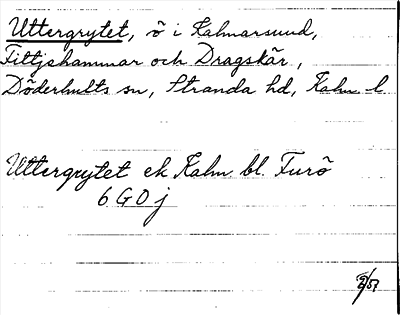 Uttergrytet, ö i Kalmarsund,
Fittjehammar och Dragskär,
Döderhults sn, Stranda hd, Kalm l
Uttergrytet ek Kalm bl. Furö
6 G 0 j